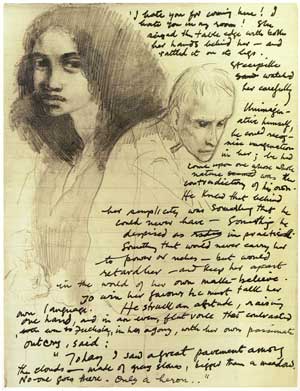 'I hate you for coming here! I
hate you in my room! She
seized the table edge with both
her hands behind her — and
rattled it on its legs.
Steerpike
watched
her carefully
Unimagin-
ative himself,
he could recog-
nise imagination
in her; he had
come upon one whose whole
nature was the
contradiction of his own
He knew that behind
her simplicity was something that he
could never have — Something he
despised as impractical
Something that would never carry her
to power or riches — but would
retard her — and keep her apart
in the world of her own make-believe.
To win her favour he must talk her
own language.
He struck an attitude, raising
one hand, and in an even, flat voice that contrasted
with
outcry, said:
"Today I saw a great pavement among
the clouds — made of grey stones, bigger than a meadow.
No one goes there. Only a heron.."